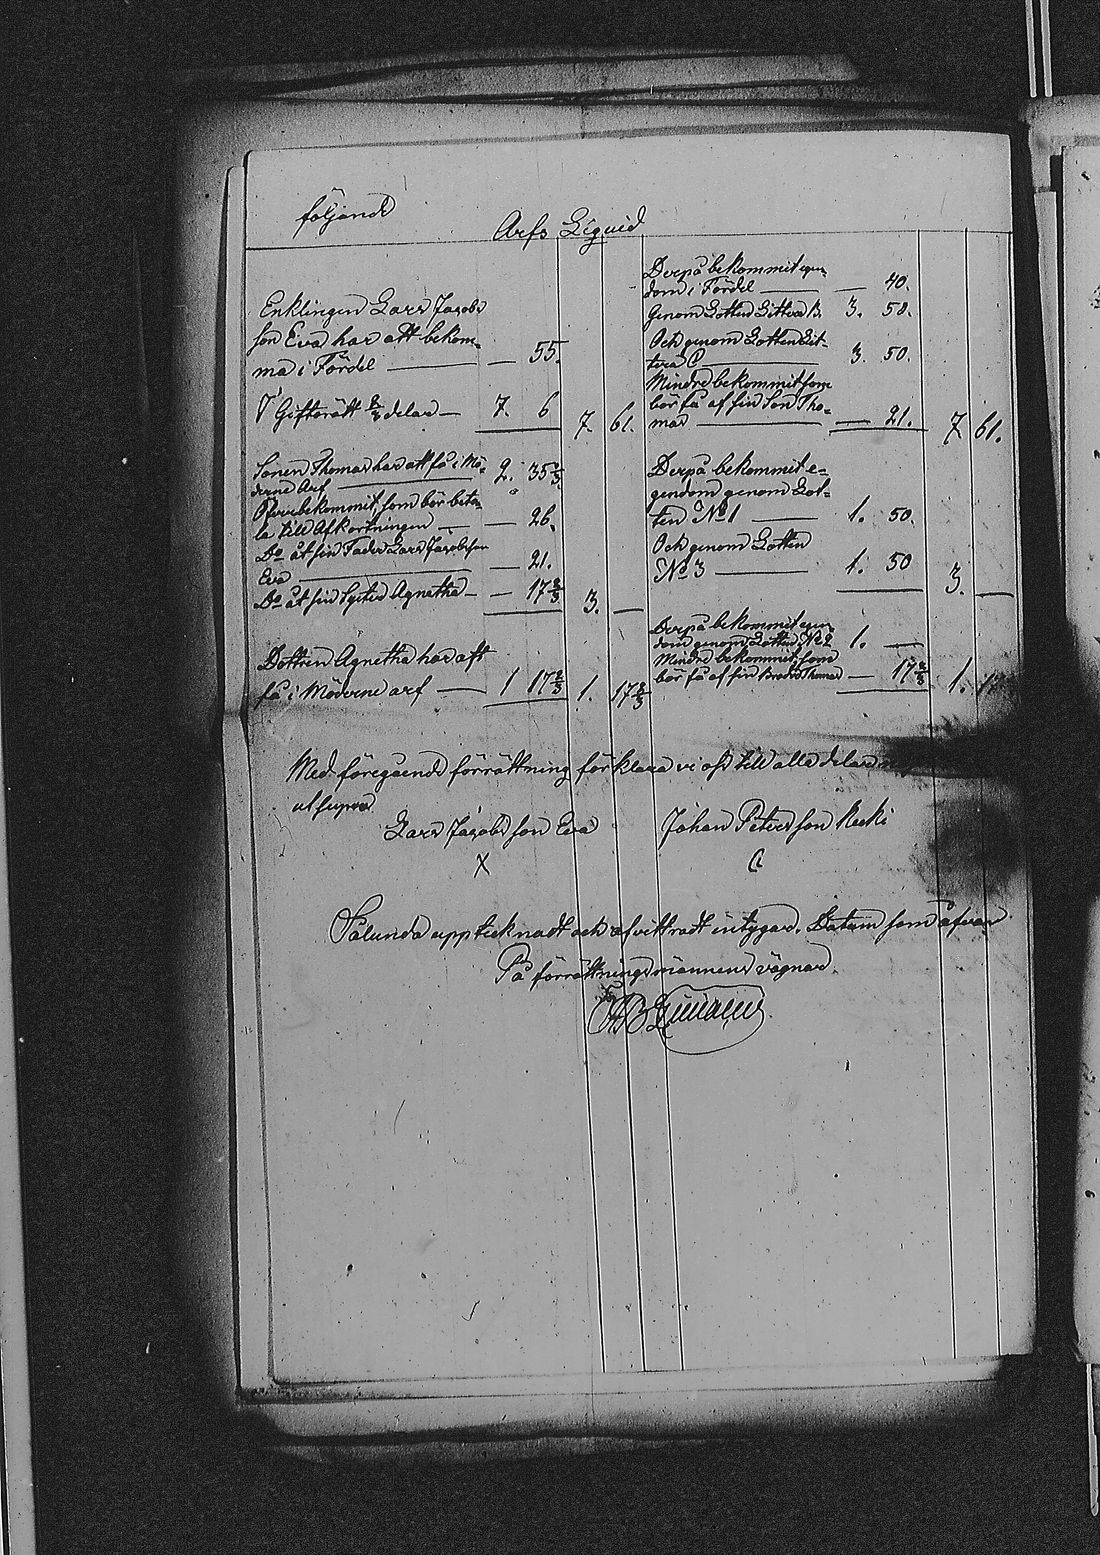 följande
Arfs Liqvid
Enklingen Lars Jacobs
son Eva har att bekom-
ma i Fördel — — 55.
I Giftorätt 2/3 delar — 7. 6 7 61.
Sonen Thomas har att få i Mö-
derne Arf — 2. 35 2/3
Öfverbekommit, som bör beta-
la till Afkortningen — — 26.
Do åt sin Fader Lars Jacobsson
Eva — — 21.
Do åt sin Syster Agnetha — — 17 2/3 3. —
Dottren Agnetha har att
få i Möderne arf — 1 17 2/3 1. 17 2/3
Derpå bekommit egen-
dom i Fördel — — 40.
Genom Lotten Littera B. 3. 50.
Och genom Lotten Lit-
tera C — 3. 50.
Mindre bekommit som
bör få af sin Son Tho-
mas — — 21. 7 61.
Derpå bekommit e-
gendom genom Lot-
ten No 1 — 1. 50.
Och genom Lotten
No 3 — 1. 50 3. —
Derpå bekommit egen-
dom genom Lotten No 2 1. —
Mindre bekommit, som
bör få af sin Broder Thomas — 17 2/3 1. 17
Med föregående förrättning förklara vi oss till alla delar
ut supra
Lars Jacobsson Eva Johan Petersson
X
Sålunda upptecknadt och afvittradt intygar. Datum som åfvan
På förrättningsmännens vägnar.